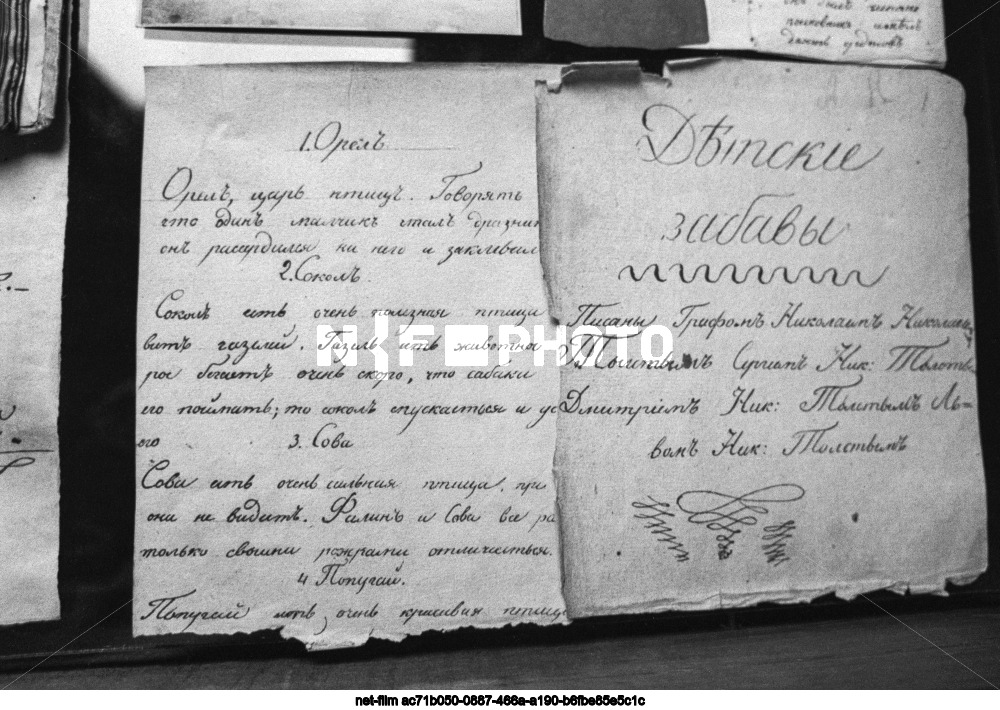 1. Орелъ
Орелъ, царь птицъ. Говорятъ
что одинъ мальчикъ сталъ дразнит
онъ рассердился на него и заклевал
2. Соколъ.
Соколъ есть очень полезная птица
витъ газелей. Газель есть животное
рое бегаетъ очень скоро, что сабаки
его поймать; то соколъ спускаеться и
его
3. Сова
Сова есть очень сильная птица. при
она не видитъ. Филинъ и Сова все ра
только своими рожрами отличаеться.
4 Попугай.
Попугай есть, очень красивая птица
Дѣтскіе
забавы
Писаны Графомъ Николаемъ Николаев
Толстымъ Сергіемъ Ник: Толсты
Дмитріемъ Ник: Толстымъ Ль-
вомъ Ник: Толстымъ
NET-FILM PHOTO
net-film ac71b050-0887-466a-a190-b6fbe85e5c1c